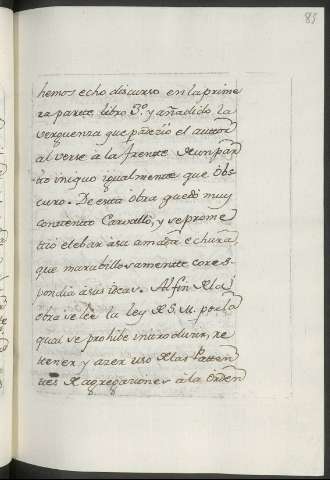 85
hemos echo discurso en la prime
ra parte libro 3º. y añadido la
verguenza que padezio el auttor
al verse à la frente de un par
to iniquo igualmente que obs
curo. De esta obra quedó muy
contento Carvallo, y se prome
tió elebar à su amada echura,
que marabillosamente cores
pondia à sus ideas. Al fin de la
obra se lee la ley de S. M. por la
qual se prohibe introducir, re
tener, y azer uso de las Patten
tes de agregaziones à la Orden